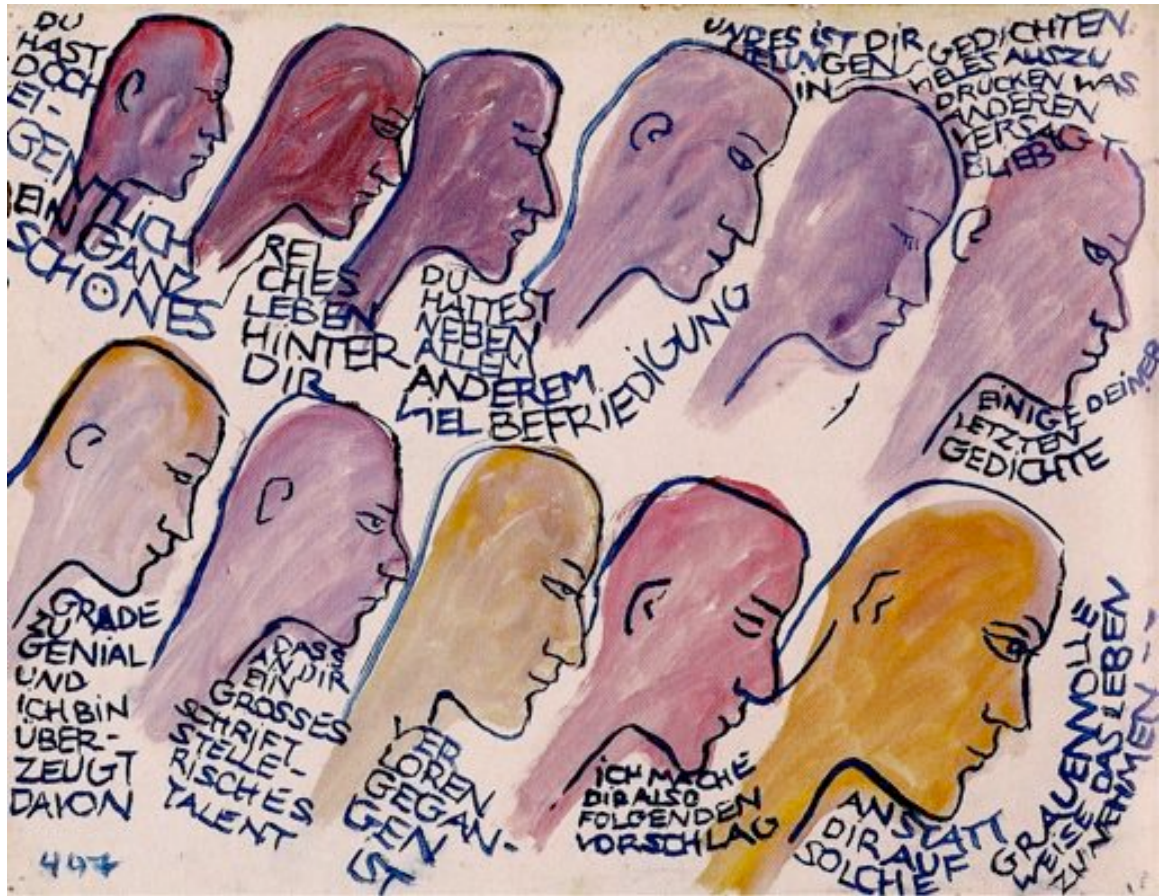 DU
HAST
DOCH
EI-
GENTLICH
EIN GANZ
SCHÖNES
REI
CHES
LEBEN
HINTER
DIR
DU
HATTEST
NEBEN
ALLEN
ANDEREM
VIEL BEFRIEDIGUNG
UND ES IST DIR
GELUNGEN
IN
GEDICHTEN
VIELES AUSZU
DRÜCKEN WAS
ANDEREN
VERSAGT
BLIEB
EINIGE DEINER
LETZTEN
GEDICHTE
GRADE
ZU
GENIAL
UND
ICH BIN
ÜBER-
ZEUGT
DAVON
DASS
AN DIR
EIN
GROSSES
SCHRIFT
STELLE-
RISCHES
TALENT
VER
LOREN
GEGAN-
GEN
IST
ICH MACHE
DIR ALSO
FOLGENDEN
VORSCHLAG
ANSTATT
DIR AUF
SOLCHE
GRAUENVOLLE
WEISE DAS LEBEN
ZU NEHMEN --